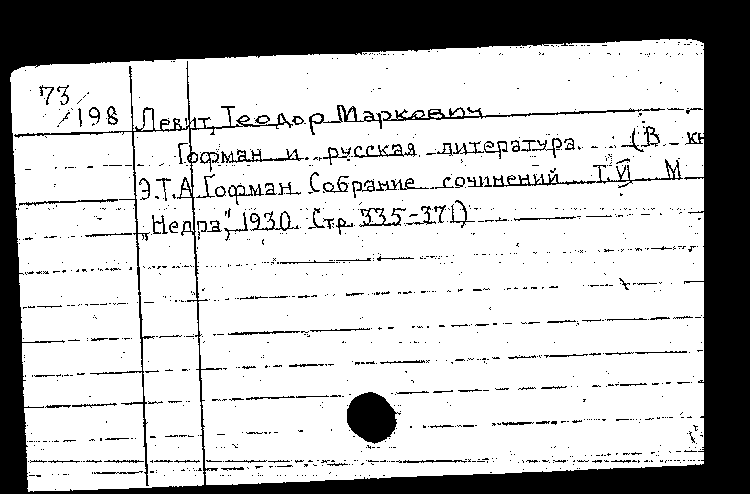 73/198
Левит, Теодор Маркович
Гофман и русская литература (В кн
Э.Т.А Гофман Собрание сочинений Т. VI М
„Недра“, 1930. Стр. 335-371)